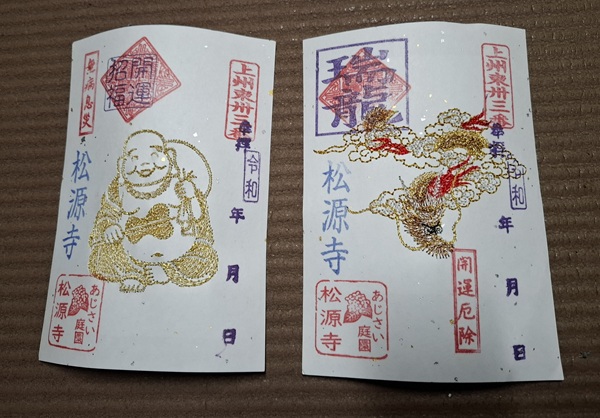 上州東卅三番
奉拝
令和
年
月
日
開運
招福
無病息災
松源寺
あじさい
庭園
松源寺
上州東卅三番
奉拝
令和
年
月
日
瑞龍
開運厄除
松源寺
あじさい
庭園
松源寺